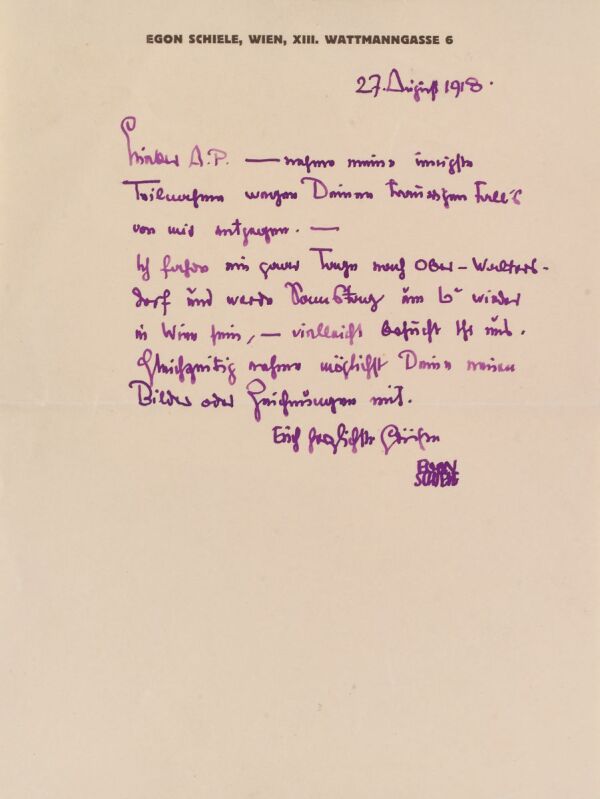 EGON SCHIELE, WIEN, XIII. WATTMANNGASSE 6
27. August 1918.
Lieber A.P. — nehme meine innigste
Teilnahme wegen Deinen traurigen Fall's
von mir entgegen. —
Ich fahre ein paar Tage nach Ober-Walters-
dorf und werde Samstag um 6h wieder
in Wien sein, — vielleicht besucht Ihr uns.
Gleichzeitig nehme möglichst Deine neuen
Bilder oder Zeichnungen mit.
Euch herzlichste Grüsse
EGON
SCHIELE